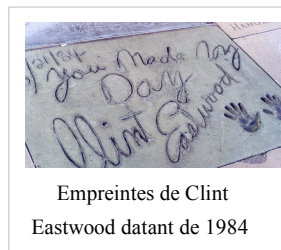 8/21/84
You Made My
Day
Clint
Eastwood
Empreintes de Clint
Eastwood datant de 1984